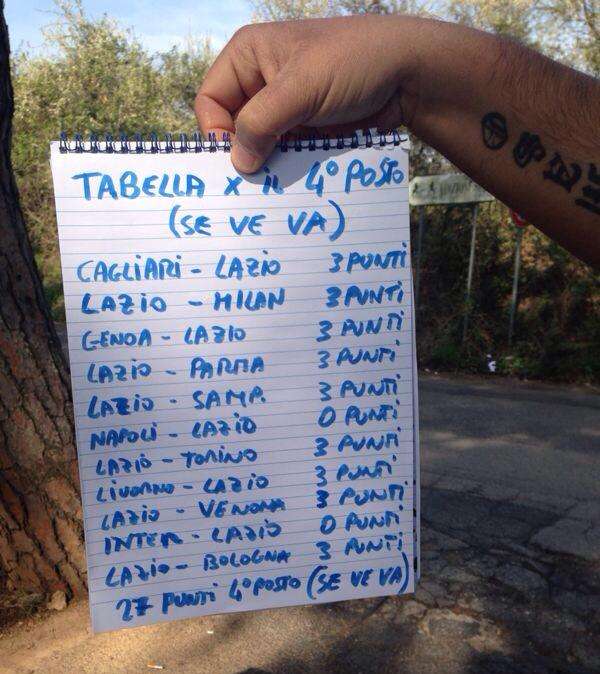 TABELLA X iL 4° POSTO
(SE VE VA)
CAGLIARI - LAZIO 3 PUNTI
LAZIO - MILAN 3 PUNTI
GENOA - LAZIO 3 PUNTI
LAZIO - PARMA 3 PUNTI
LAZIO - SAMP. 3 PUNTI
NAPOLI - LAZIO 0 PUNTI
LAZIO - TORINO 3 PUNTI
LIVORNO - LAZIO 3 PUNTI
LAZIO - VERONA 3 PUNTI
INTER - LAZIO 0 PUNTI
LAZIO - BOLOGNA 3 PUNTI
27 PUNTI 4° POSTO (SE VE VA)